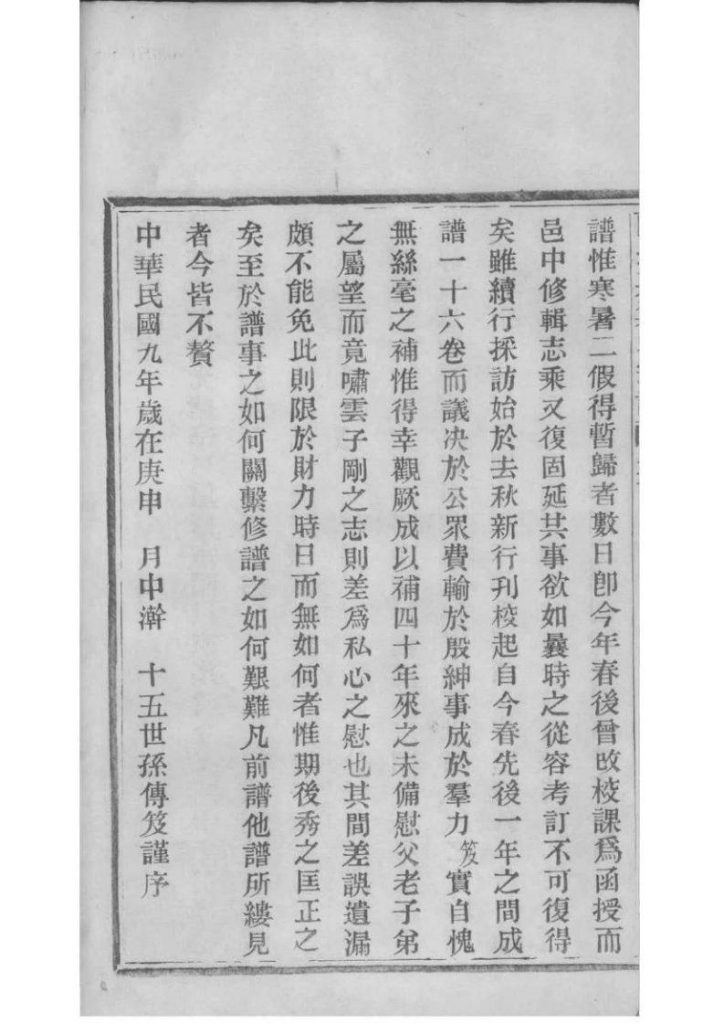 譜惟寒暑二假得暫歸者數日卽今年春後曾改校課爲函授而
邑中修輯志乘又復固延共事欲如曩時之從容考訂不可復得
矣雖續行採訪始於去秋新行刋校起自今春先後一年之間成
譜一十六卷而議決於公眾費輸於殷紳事成於羣力笈實自愧
無絲毫之補惟得幸觀厥成以補四十年來之未備慰父老子弟
之屬望而竟嘯雲子剛之志則差爲私心之慰也其間差誤遺漏
頗不能免此則限於財力時日而無如何者惟期後秀之匡正之
矣至於譜事之如何關繫修譜之如何艱難凡前譜他譜所縷見
者今皆不贅
中華民國九年歲在庚申　月中澣　十五世孫傳笈謹序